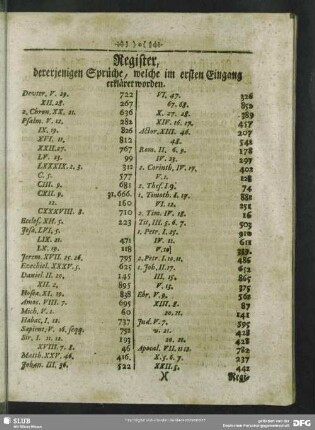 Register,
dererjenigen Sprüche, welche im ersten Eingang
erkläret worden.
Deuter. V. 29. 722
XII. 28. 267
2. Chron. XX. 21. 636
Psalm. V. 12. 282
IX. 19. 826
XVI. 11. 812
XXII. 27. 767
LV. 23. 99
LXXXIX. 2. 3. 312
C. 5. 577
CIII. 9. 681
CXII. 9. 31. 666.
12. 160
CXXXVIII. 8. 710
Eccles. XII. 7. 223
Jesa. LVI, 5.
LIX. 21. 471
LX. 19. 118
Jerem. XVII. 25. 26. 795
Ezechiel. XXXV. 5. 625
Daniel. II. 10. 145
XII. 2. 895
Hosea. XI. 19. 838
Amos. VIII. 7. 695
Mich. V. 2. 60
Habac. I, 12. 737
Sapient. V. 16. seqq. 751
Sir. I. 11. 12. 193
XVIII. 7. 8. 46
Matth. XXV. 46. 416.
Johan. III. 36. 522
VI. 47. 326
67. 68. 850
X. 27. 28. 389
XIV. 16. 17. 457
Actor. XIII. 46. 207
48. 541
Rom. II. 6. 9. 178
IV. 25. 297
2. Corinth. IV. 17. 402
V. 1. 128
2. Thes. I. 9. 74
1. Timoth. 8. 17. 881
VI. 12. 251
2. Tim. IV. 18. 16
Tit. III. 5. 6. 7. 503
1. Petr. I. 25. 910
IV. 11. 618
2. Petr. I. 10. 11. 652
1. Joh. II. 17. 865
III. 15. 863
V. 13. 375
Ebr. V. 9. 562
XIII. 8. 87
20. 21. 141
Jud. V. 7. 595
v. 21. 428
20. 21. 428
Apocal. VII. 11. 12. 782
X. 5. 6. 7. 237
XXII. 5. 442
X
Regi-
SLUB
DFG